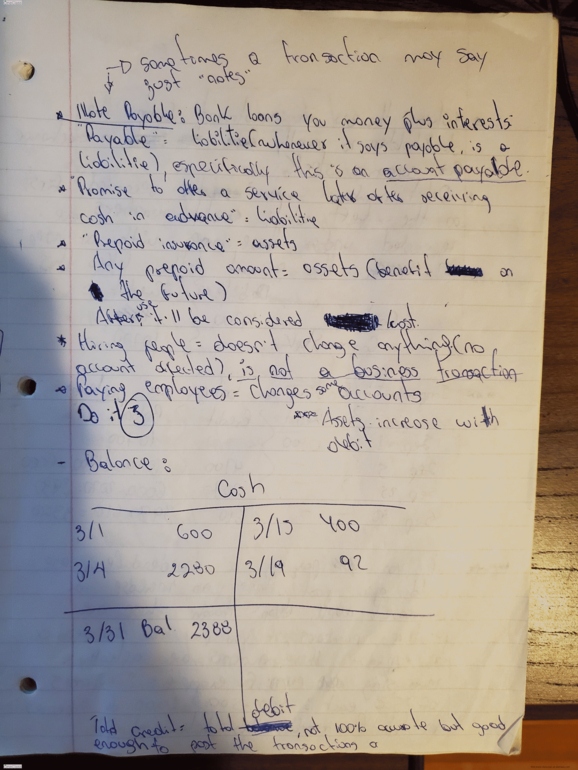 → sometimes a transaction may say
↓ just "notes"
• Note Payable: Bank loans you money plus interests
"Payable" = liabilitie(whenever it says payable, is a
liabilitie), especifically this is an account payable.
• "Promise to offer a service later after receiving
cash in advance" = liabilitie
• "Prepaid insurance" = assets
• Any prepaid amount = assets (benefit on
the future)
After use it'll be considered cost.
* Hiring people = doesn't change anything(no
account affected), is not a business transaction
• Paying employees = changes some accounts
Do it 3
Assets increase with
debit
- Balance:
Cash
3/1 600 3/15 400
3/4 2280 3/19 92
3/31 Bal 2388
Total credit = total debit, not 100% accurate but good
enough to post the transactions